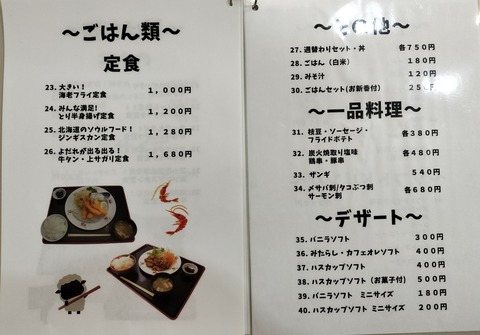 〜ごはん類〜
定食
23. 大きい！
海老フライ定食 1,000円
24. みんな満足！
とり半身揚げ定食 1,200円
25. 北海道のソウルフード！
ジンギスカン定食 1,280円
26. よだれが出る出る！
牛タン・上サガリ定食 1,680円
〜その他〜
27. 週替わりセット・丼 各750円
28. ごはん（白米） 180円
29. みそ汁 120円
30. ごはんセット(お新香付)
〜一品料理〜
31. 枝豆・ソーセージ・
フライドポテト 各380円
32. 炭火焼取り塩味
鶏串・豚串 各480円
33. ザンギ 540円
34. 〆サバ刺/タコぶつ刺
サーモン刺 各680円
〜デザート〜
35. バニラソフト 300円
36. みたらし・カフェオレソフト 400円
37. ハスカップソフト 400円
38. ハスカップソフト（お菓子付） 500円
39. バニラソフト ミニサイズ 180円
40. ハスカップソフト ミニサイズ 200円